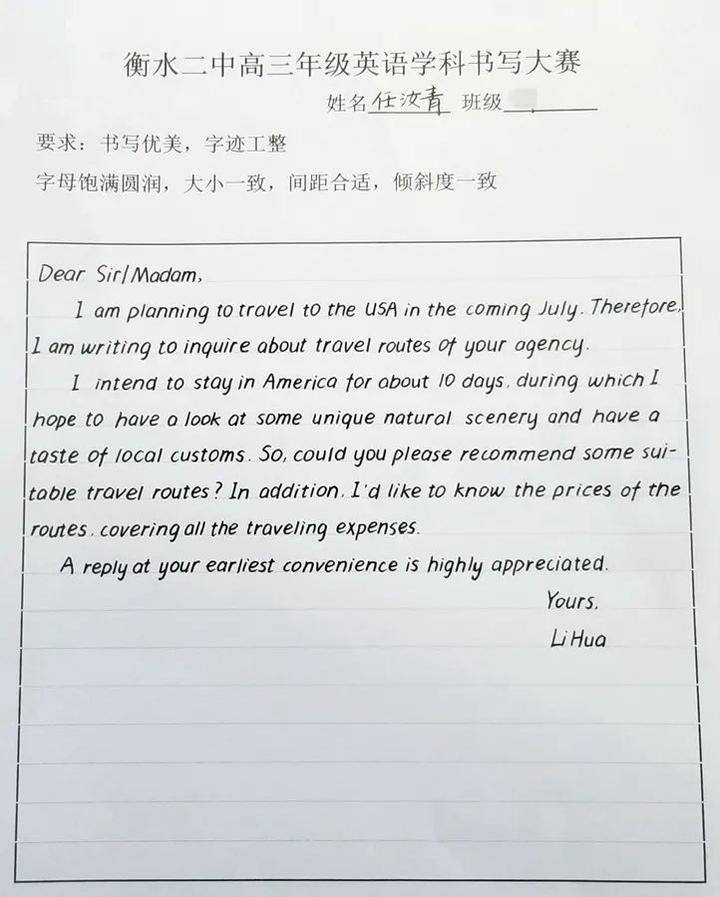 衡水二中高三年级英语学科书写大赛
姓名 任汝青 班级
要求：书写优美，字迹工整
字母饱满圆润，大小一致，间距合适，倾斜度一致
Dear Sir/Madam,
I am planning to travel to the USA in the coming July. Therefore,
I am writing to inquire about travel routes of your agency.
I intend to stay in America for about 10 days, during which I
hope to have a look at some unique natural scenery and have a
taste of local customs. So, could you please recommend some sui-
table travel routes? In addition, I'd like to know the prices of the
routes, covering all the traveling expenses.
A reply at your earliest convenience is highly appreciated.
Yours,
Li Hua